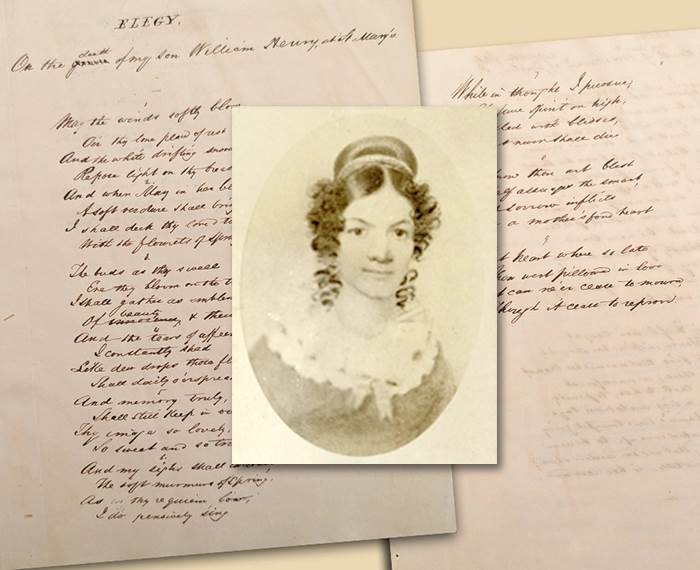 ELEGY.
On the death of my son William Henry, at St Mary's
May the winds softly blow
O'er thy lone place of rest
And the white drifting snow
Repose light on thy breast
And when May in her
A soft verdure shall
I shall deck thy
With the flowrets of
The buds as they swell
Ere they bloom on the
I shall gather as emblem
Of beauty &
And the tears of
I constantly shed
Like dew drops
Shall daily o'erspread
And memory truly,
Shall still keep in
Thy image so lovely,
So sweet and so
And my sighs shall
The soft murmurs of Spring.
As thy requiem low,
I do pensively sing
While in thought I pursue,
spirit on high,
with blisses,
shall die
thou art blest
the smart,
sorrow inflicts
a mother's fond heart
heart where so late
went pillowed in love
can ne'er cease to mourn
Though it cease to reprove.